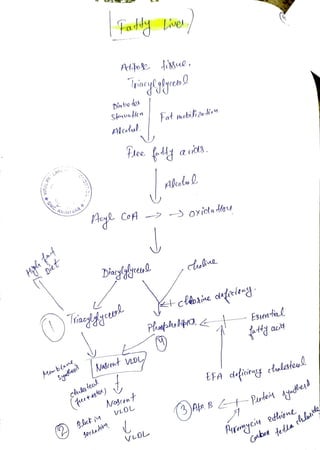 Fatty Liver
Adipose tissue.
Triacylglycerol
Diabetes
Starvation
Alcohol.
Fat mobilization
Free fatty acids.
Alcohol
Acyl CoA → → oxidation
High fat
Diet
Diacylglycerol
choline
choline deficiency.
① Triacylglycerol
Phospholipid
Essential
fatty acid
④
Membrane
synthesis
Nascent VLDL
cholesterol
Nascent
VLDL
EFA deficiency cholesterol
② Block in
secretion
VLDL
③ Apo. B
Protein synthesis
Puromycin ethionine
Carbon tetra chloride